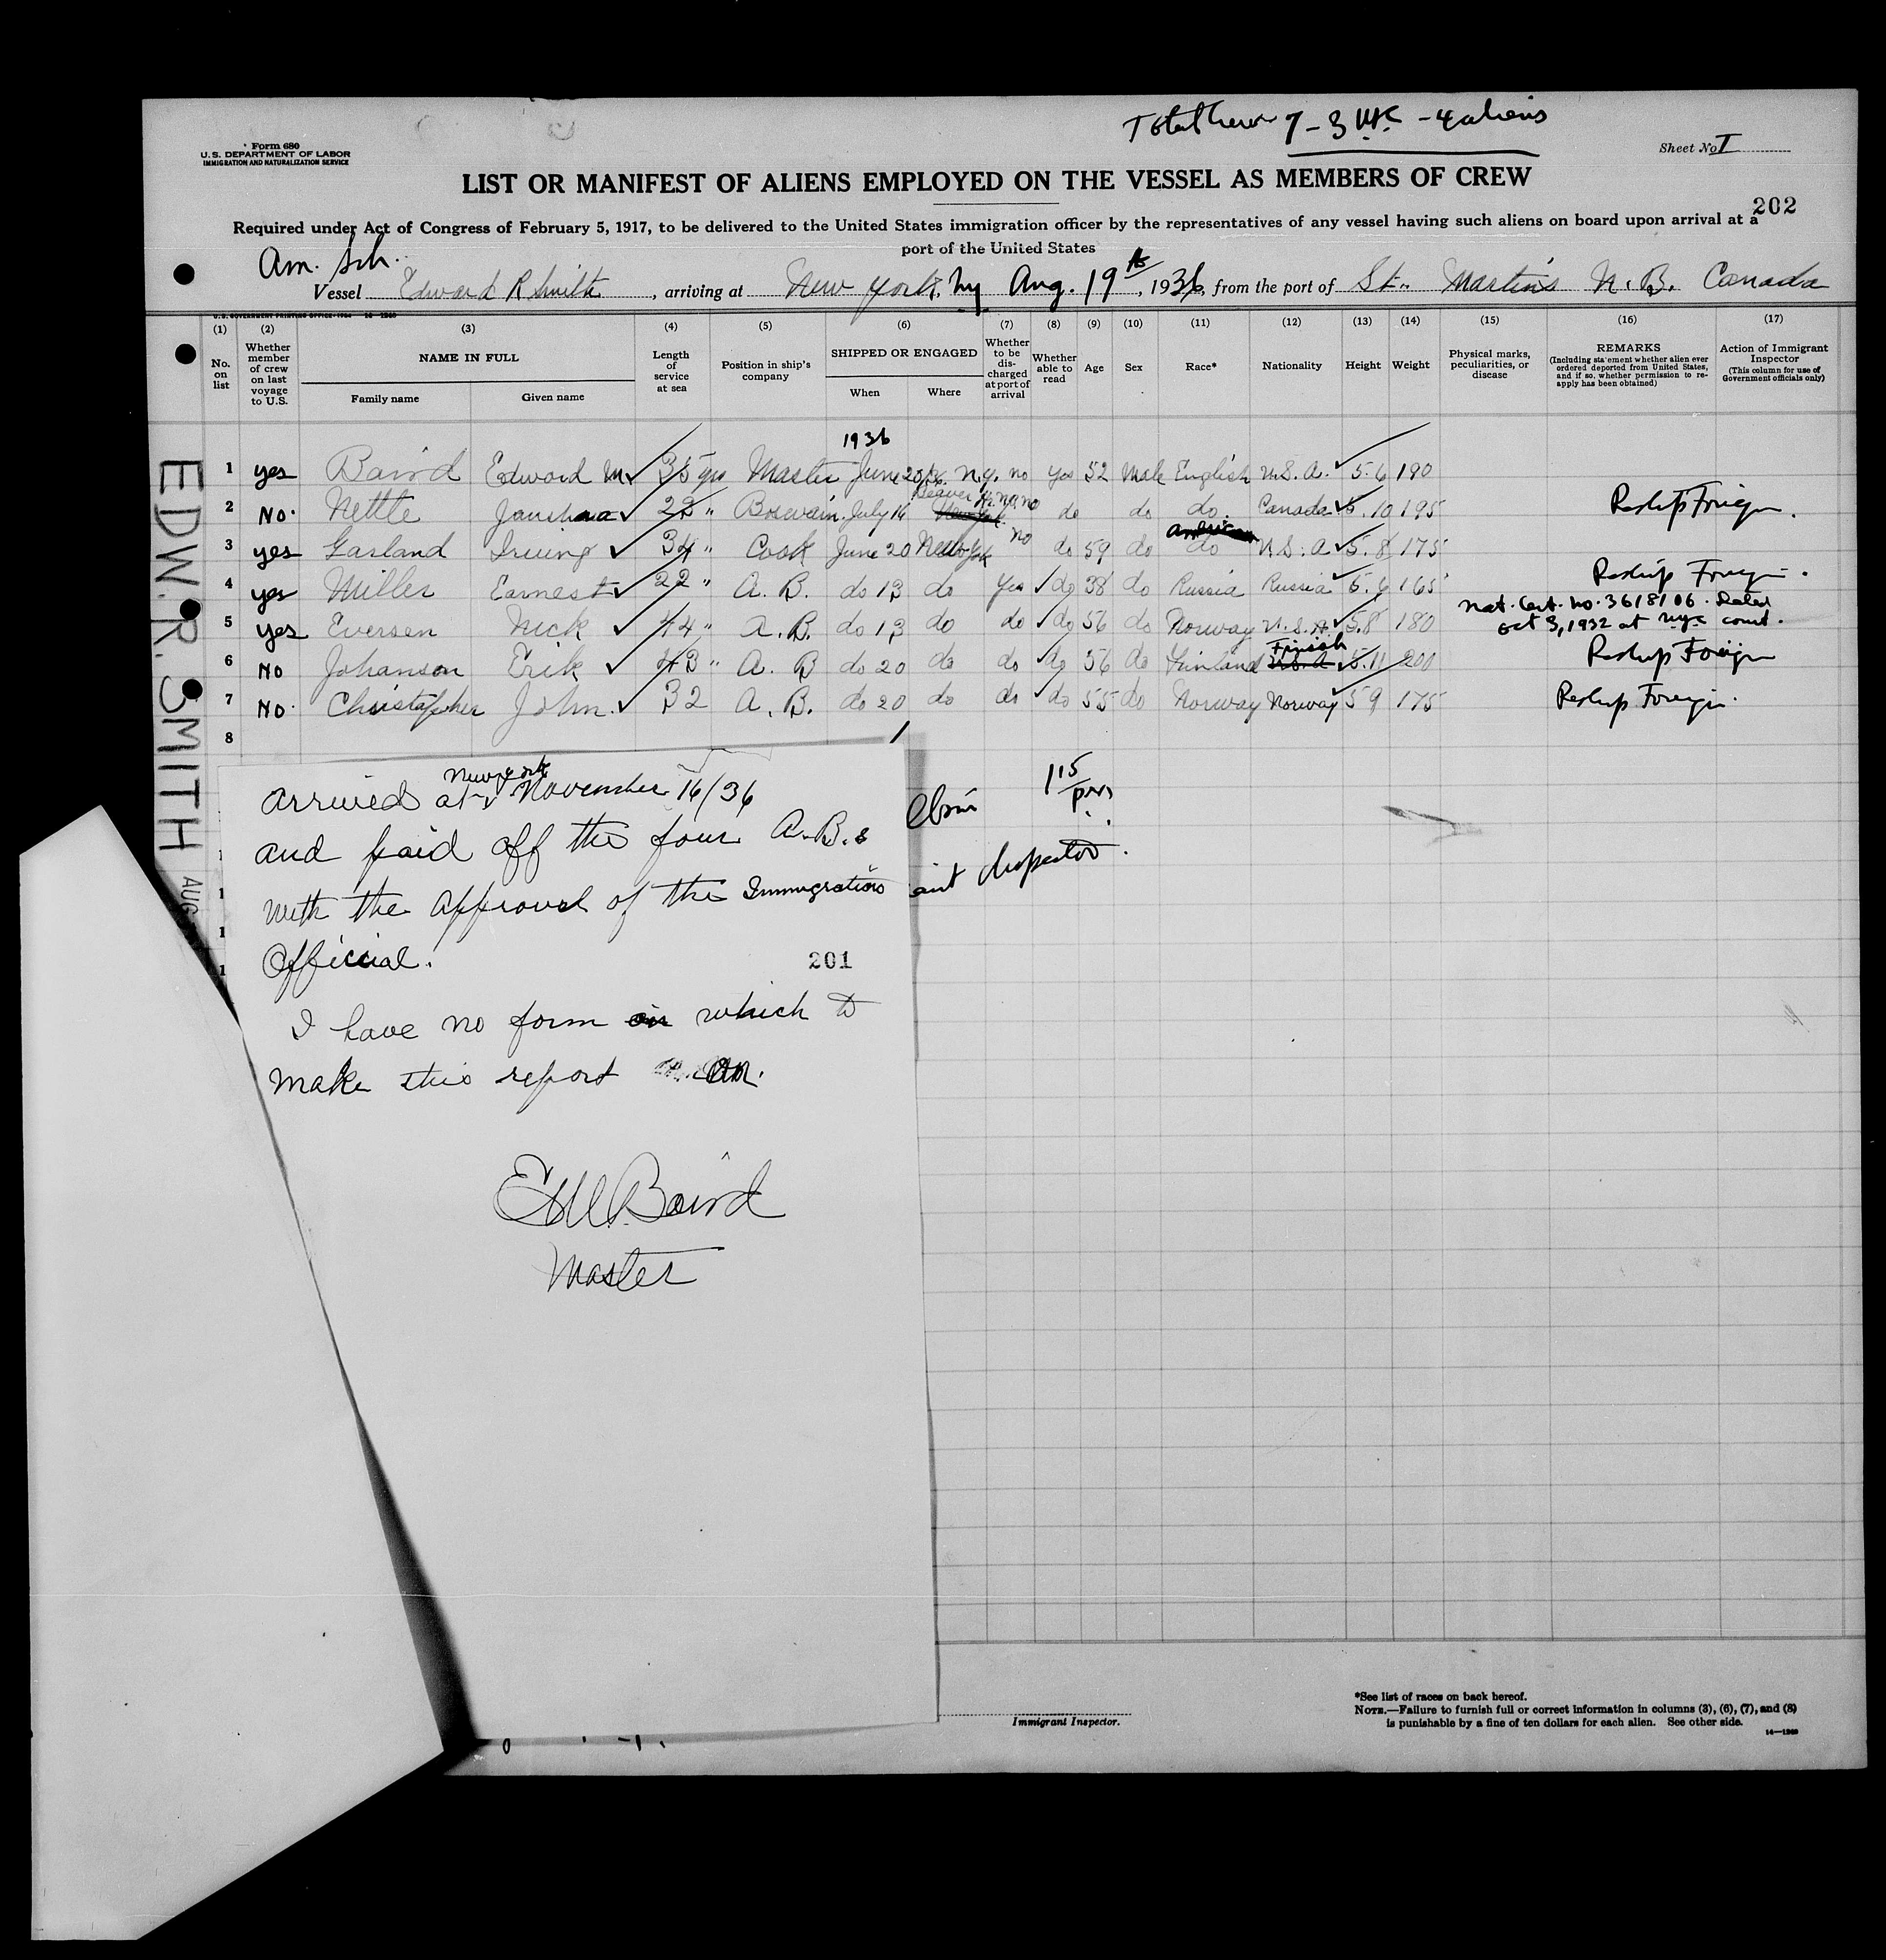 Total Crew 7 - 3 USC - 4 aliens
Form 680
U.S. DEPARTMENT OF LABOR
IMMIGRATION AND NATURALIZATION SERVICE
Sheet No. I
LIST OR MANIFEST OF ALIENS EMPLOYED ON THE VESSEL AS MEMBERS OF CREW
202
Required under Act of Congress of February 5, 1917, to be delivered to the United States immigration officer by the representatives of any vessel having such aliens on board upon arrival at a
port of the United States
Am. Sch.
Vessel Edward R Smith, arriving at New York, NY Aug. 19th, 1936, from the port of St. Martins N. B. Canada
U.S. GOVERNMENT PRINTING OFFICE
(1) (2) (3) (4) (5) (6) (7) (8) (9) (10) (11) (12) (13) (14) (15) (16) (17)
No. on list
Whether member of crew on last voyage to U.S.
NAME IN FULL
Family name
Given name
Length of service at sea
Position in ship's company
SHIPPED OR ENGAGED
When
Where
Whether to be discharged at port of arrival
Whether able to read
Age
Sex
Race*
Nationality
Height
Weight
Physical marks, peculiarities, or disease
REMARKS
(Including statement whether alien ever ordered deported from United States, and if so, whether permission to reapply has been obtained)
Action of Immigrant Inspector
(This column for use of Government officials only)
1936
1 yes Baird Edward M 35 yrs Master June 20 N.Y. no yes 52 Male English U.S.A. 5.6 190
2 No. Nettle 22 " Boswain July 16 no do do do. Canada 5.10 195 Reship Foreign.
3 yes Garland Irving 34 " Cook June 20 New York no do 59 do do U.S.A 5.8 175
4 yes Miller Earnest 22 " A. B. do 13 do Yes do 38 do Russia Russia 5.6 165 Reship Foreign.
Nat. Cert. No. 3618106. Dated
5 yes Eversen Nick 44 " A. B. do 13 do do do 56 do Norway U.S.A. 5.8 180 Oct 3, 1932 at NYC court.
6 No Johanson Erik 43 " A. B do 20 do do do 56 do Finland Finish 5.11 200 Reship Foreign
7 No. Christopher John. 32 A. B. do 20 do do do 55 do Norway Norway 5 9 175 Reship Foreign.
8
EDW. R. SMITH AUG
Arrived at New York November 16/36
and paid off the four A.B.s
with the approval of the Immigration
Official.
201
I have no form on which to
make this report
E M Baird
Master
1 15 pm
Inspector.
Immigrant Inspector.
*See list of races on back hereof.
NOTE.—Failure to furnish full or correct information in columns (3), (6), (7), and (8)
is punishable by a fine of ten dollars for each alien. See other side.
14—1260